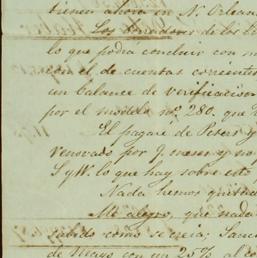 tienen ahora en N. Orlean
Los borradores de los li
lo que podrá concluir con m
con el de cuentas corrientes
un balance de verificacion
por el modelo no. 280, que
El pagaré de
renovado por J. meses y no
S y W. lo que hay sobre esto
Nada hemos
Me alegro, que nada
salido como se creia; San
de Mayo con un 25% al